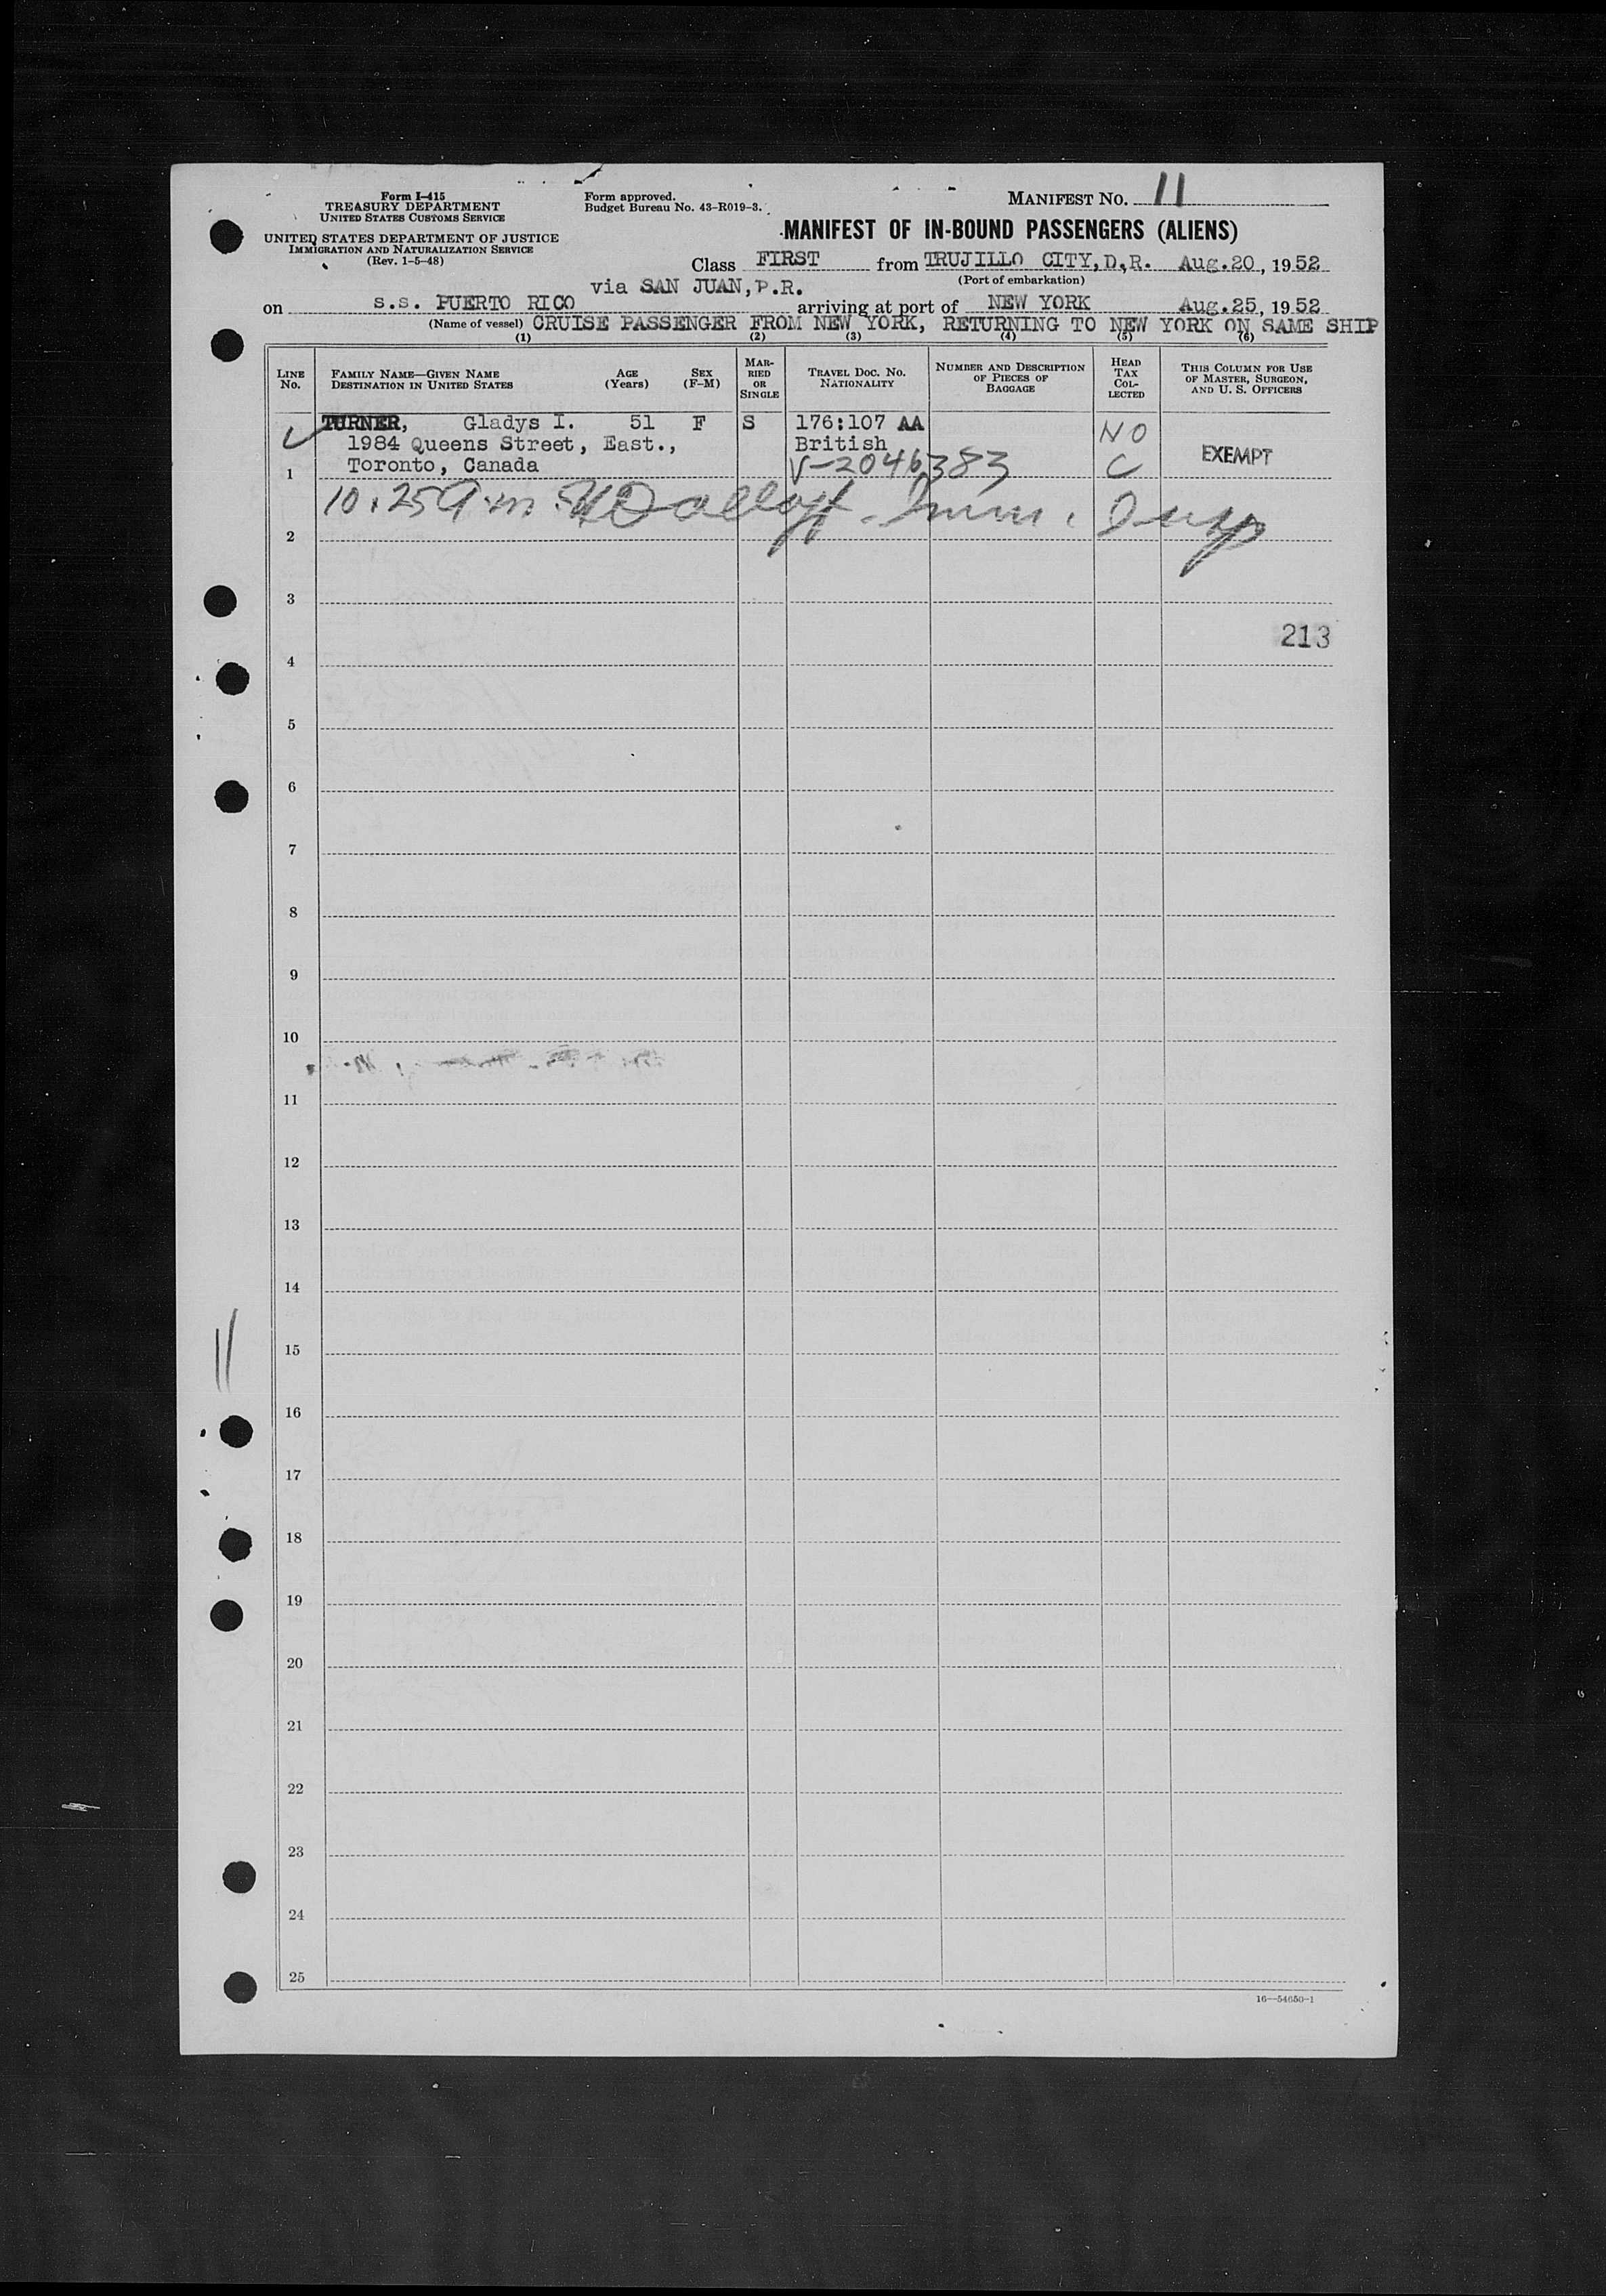 Form I-415
TREASURY DEPARTMENT
UNITED STATES CUSTOMS SERVICE
UNITED STATES DEPARTMENT OF JUSTICE
IMMIGRATION AND NATURALIZATION SERVICE
(Rev. 1-5-48)
Form approved.
Budget Bureau No. 43-R019-3.
MANIFEST NO. 11
MANIFEST OF IN-BOUND PASSENGERS (ALIENS)
Class FIRST from TRUJILLO CITY, D.R. Aug.20, 1952
(Port of embarkation)
via SAN JUAN, P.R.
on s.s. PUERTO RICO arriving at port of NEW YORK Aug.25, 1952
(Name of vessel) CRUISE PASSENGER FROM NEW YORK, RETURNING TO NEW YORK ON SAME SHIP
(1) (2) (3) (4) (5) (6)
LINE No.
FAMILY NAME—GIVEN NAME
DESTINATION IN UNITED STATES
AGE
(Years)
SEX
(F-M)
MAR-
RIED
OR
SINGLE
TRAVEL DOC. NO.
NATIONALITY
NUMBER AND DESCRIPTION
OF PIECES OF
BAGGAGE
HEAD
TAX
COL-
LECTED
THIS COLUMN FOR USE
OF MASTER, SURGEON,
AND U. S. OFFICERS
TURNER, Gladys I. 51 F S 176:107 AA NO
1984 Queens Street, East., British EXEMPT
1 Toronto, Canada V-2046383 C
10.25 A.m. Imm. Insp
2
3
213
4
5
6
7
8
9
10
11
12
13
14
15
11
16
17
18
19
20
21
22
23
24
25
16—54650-1